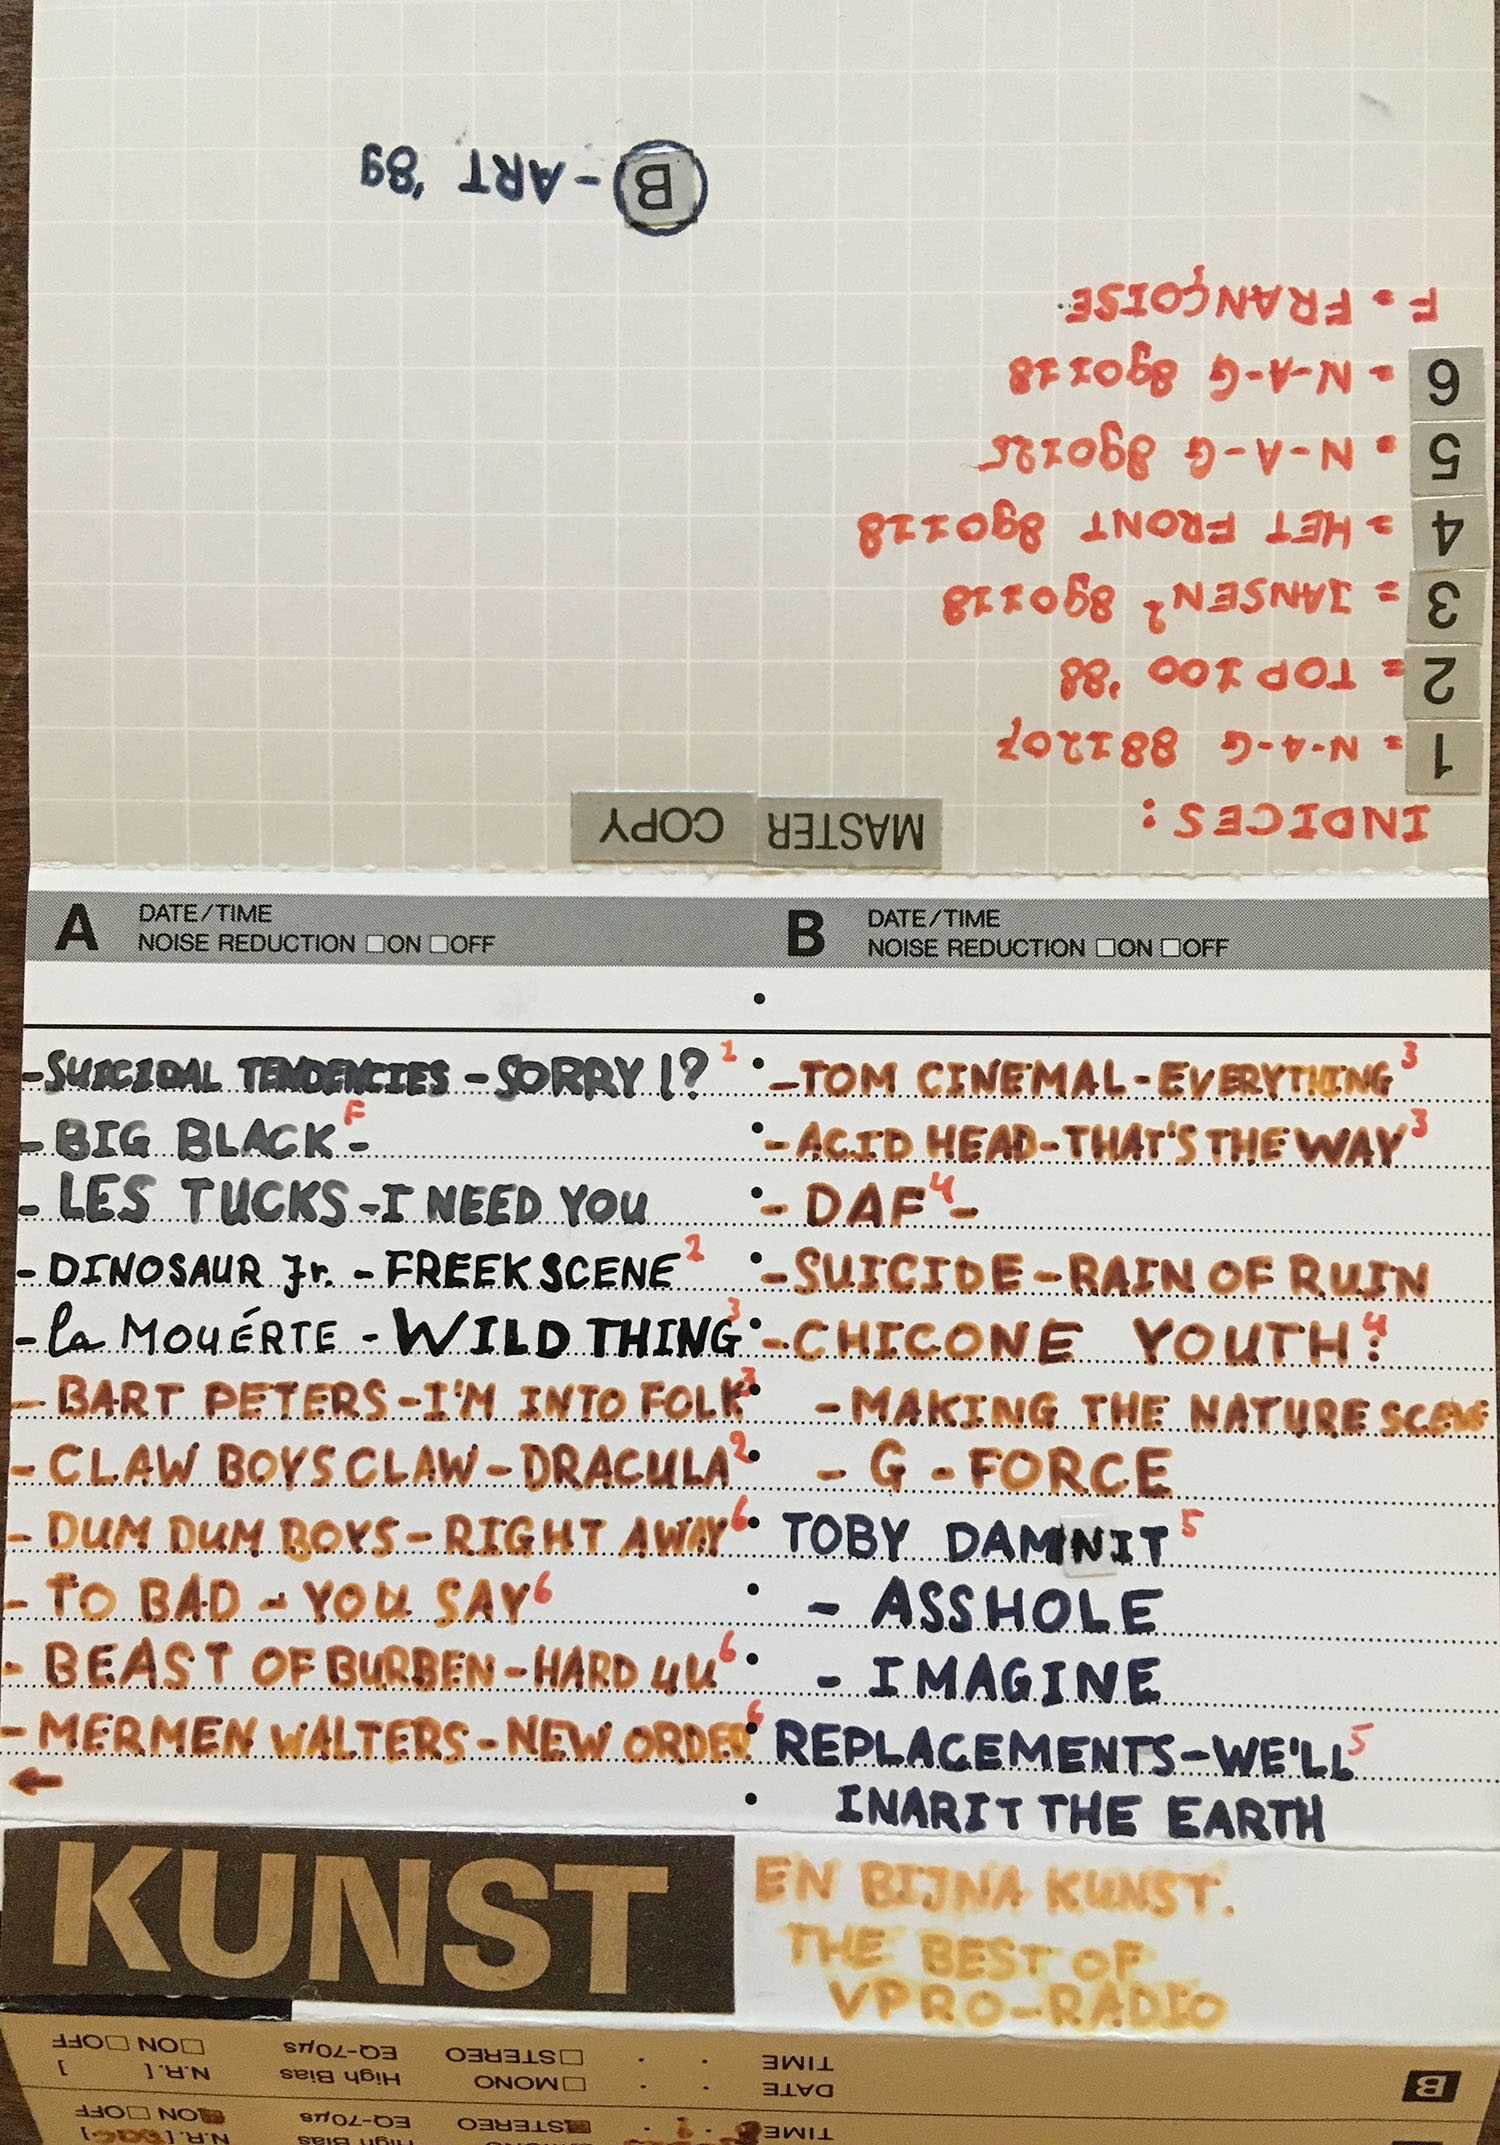 B - ART '89
INDICES:
1 = N-A-G 881207
2 = TOP 100 '88
3 = JANSEN² 890118
4 = HET FRONT 890118
5 = N-A-G 890125
6 = N-A-G 890118
F = FRANÇOISE
MASTER COPY
A DATE/TIME
NOISE REDUCTION □ON □OFF
- SUICIDAL TENDENCIES - SORRY !? 1
- BIG BLACK F -
- LES TUCKS - I NEED YOU
- DINOSAUR Jr. - FREEKSCENE 2
- la MOUÉRTE - WILD THING 3
- BART PETERS - I'M INTO FOLK 3
- CLAW BOYS CLAW - DRACULA 2
- DUM DUM BOYS - RIGHT AWAY 6
- TO BAD - YOU SAY 6
- BEAST OF BURBEN - HARD 4U 6
- MERMEN WALTERS - NEW ORDER 6
←
B DATE/TIME
NOISE REDUCTION □ON □OFF
- TOM CINEMAL - EVERYTHING 3
- ACID HEAD - THAT'S THE WAY 3
- DAF 4 -
- SUICIDE - RAIN OF RUIN
- CHICONE YOUTH? 4
- MAKING THE NATURE SCENE
- G - FORCE
TOBY DAMNIT 5
- ASSHOLE
- IMAGINE
REPLACEMENTS - WE'LL 5
INARIT THE EARTH
KUNST
EN BIJNA KUNST.
THE BEST OF
VPRO-RADIO
TIME □STEREO EQ-70µs □ON □OFF
B DATE □MONO High Bias N.R. [ ]
TIME STEREO EQ-70µs ON □OFF
High Bias N.R. [